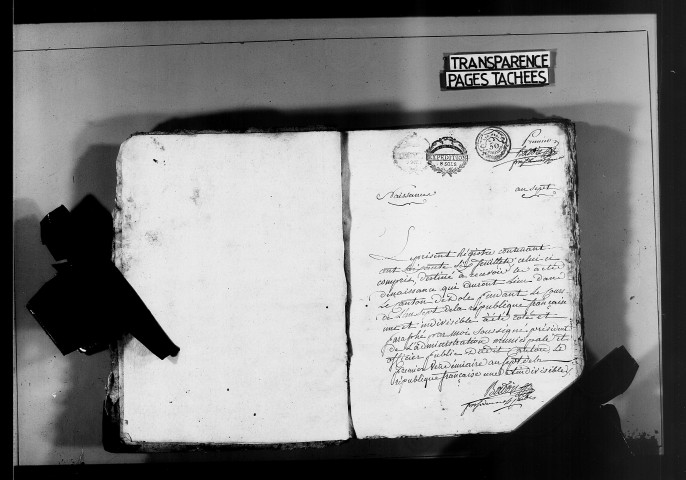 TRANSPARENCE
PAGES TACHÉES
Premier
Naissance
an sept
Le présent Registre contenant
cent soixante six feuillets celui ci
compris, destiné à recevoir les actes
de naissance qui auront lieu dans
le canton de Dole pendant le cours
de l'an sept de la république française
une et indivisible à été coté et
paraphé par moi soussigné président
de l'administration municipale et
officier public dudit
premier Vendémiaire an sept de la
République française une et indivisible